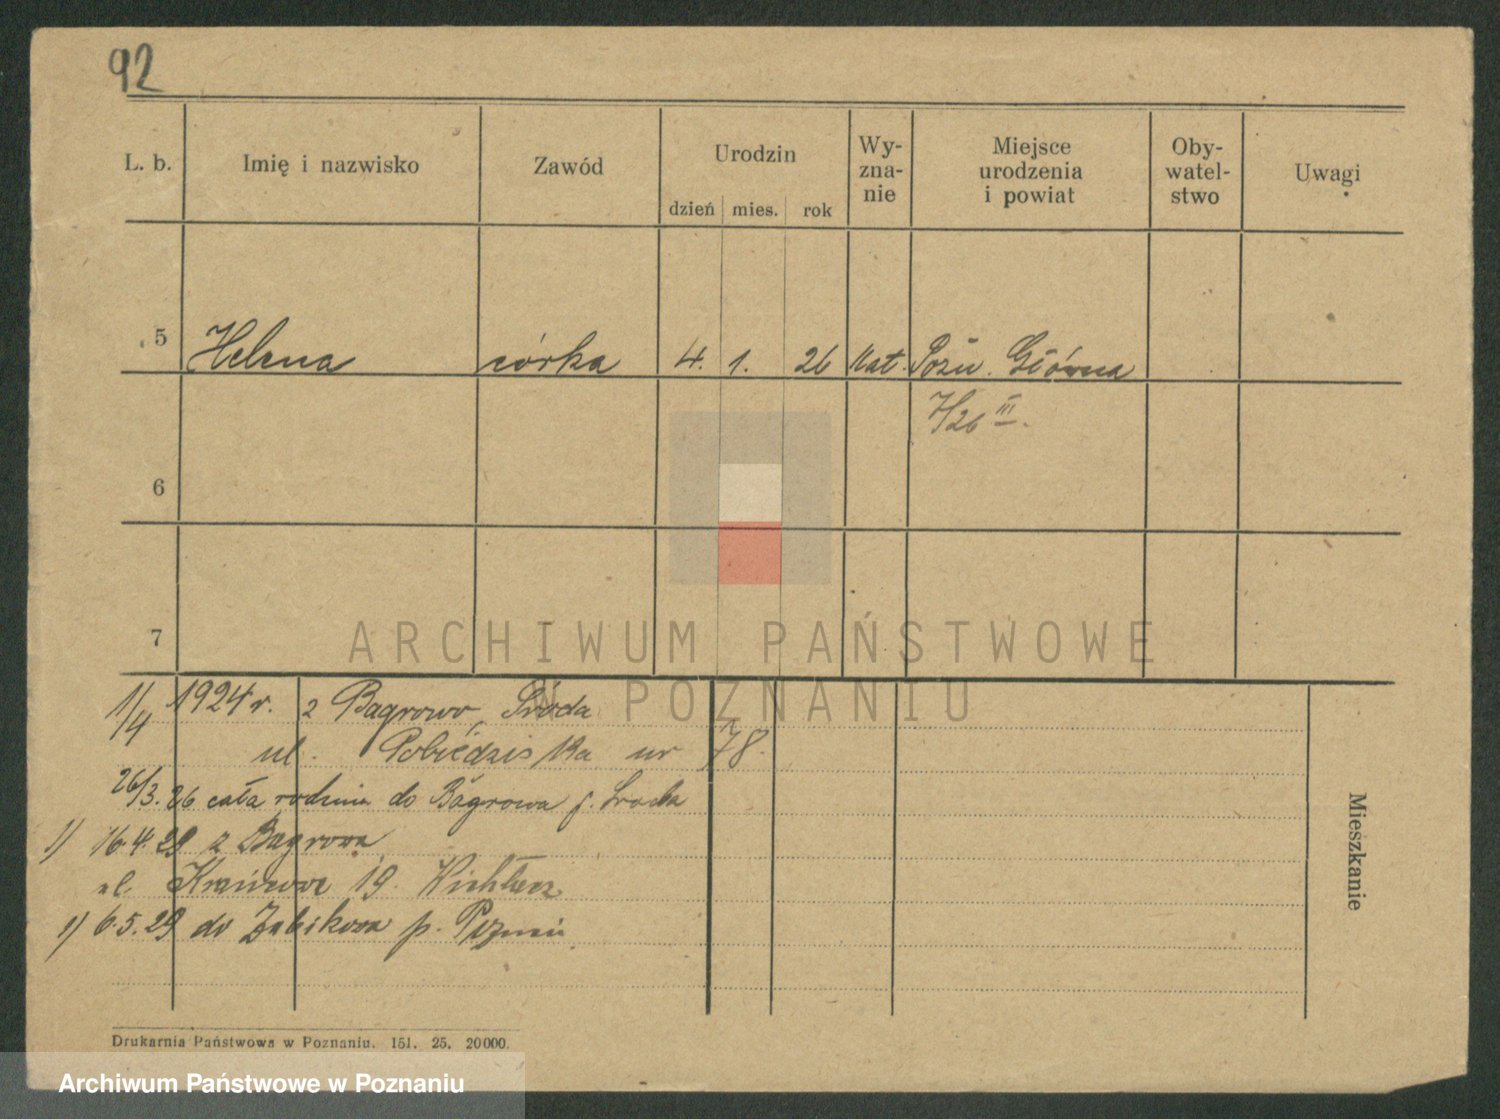 92
L. b. Imię i nazwisko Zawód Urodzin dzień mies. rok Wy-zna-nie Miejsce urodzenia i powiat Oby-watel-stwo Uwagi
5 Helena córka 4. 1. 26 kat. Pozn. Główna
7/26 III.
6
7
ARCHIWUM PAŃSTWOWE
W POZNANIU
1/4 1924 r. z Bagrowo, Środa
ul. Pobiedziska nr 78.
26/3. 26 cała rodzina do Bagrowa p. Środa
1) 16.4.29 z Bagrowa
ul. 19.
1) 6.5.29 do Żabikowa p. Poznań
Mieszkanie
Drukarnia Państwowa w Poznaniu. 151. 25. 20000.
Archiwum Państwowe w Poznaniu